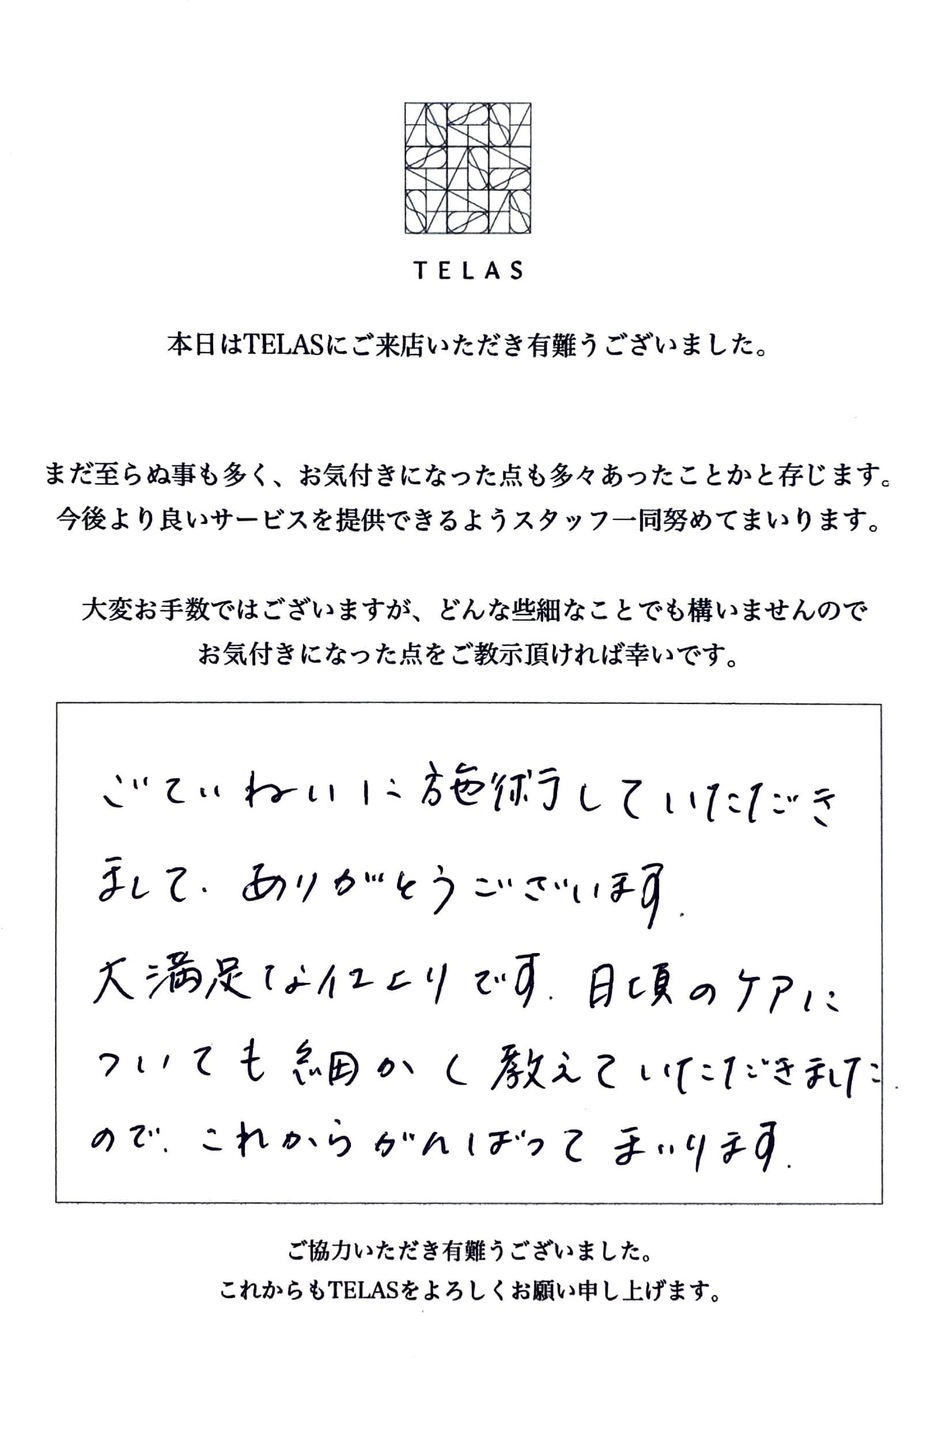 TELAS
本日はTELASにご来店いただき有難うございました。
まだ至らぬ事も多く、お気付きになった点も多々あったことかと存じます。
今後より良いサービスを提供できるようスタッフ一同努めてまいります。
大変お手数ではございますが、どんな些細なことでも構いませんので
お気付きになった点をご教示頂ければ幸いです。
ごていねいに施術していただき
まして、ありがとうございます。
大満足な仕上りです。日頃のケアに
ついても細かく教えていただきました
ので、これからがんばってまいります。
ご協力いただき有難うございました。
これからもTELASをよろしくお願い申し上げます。